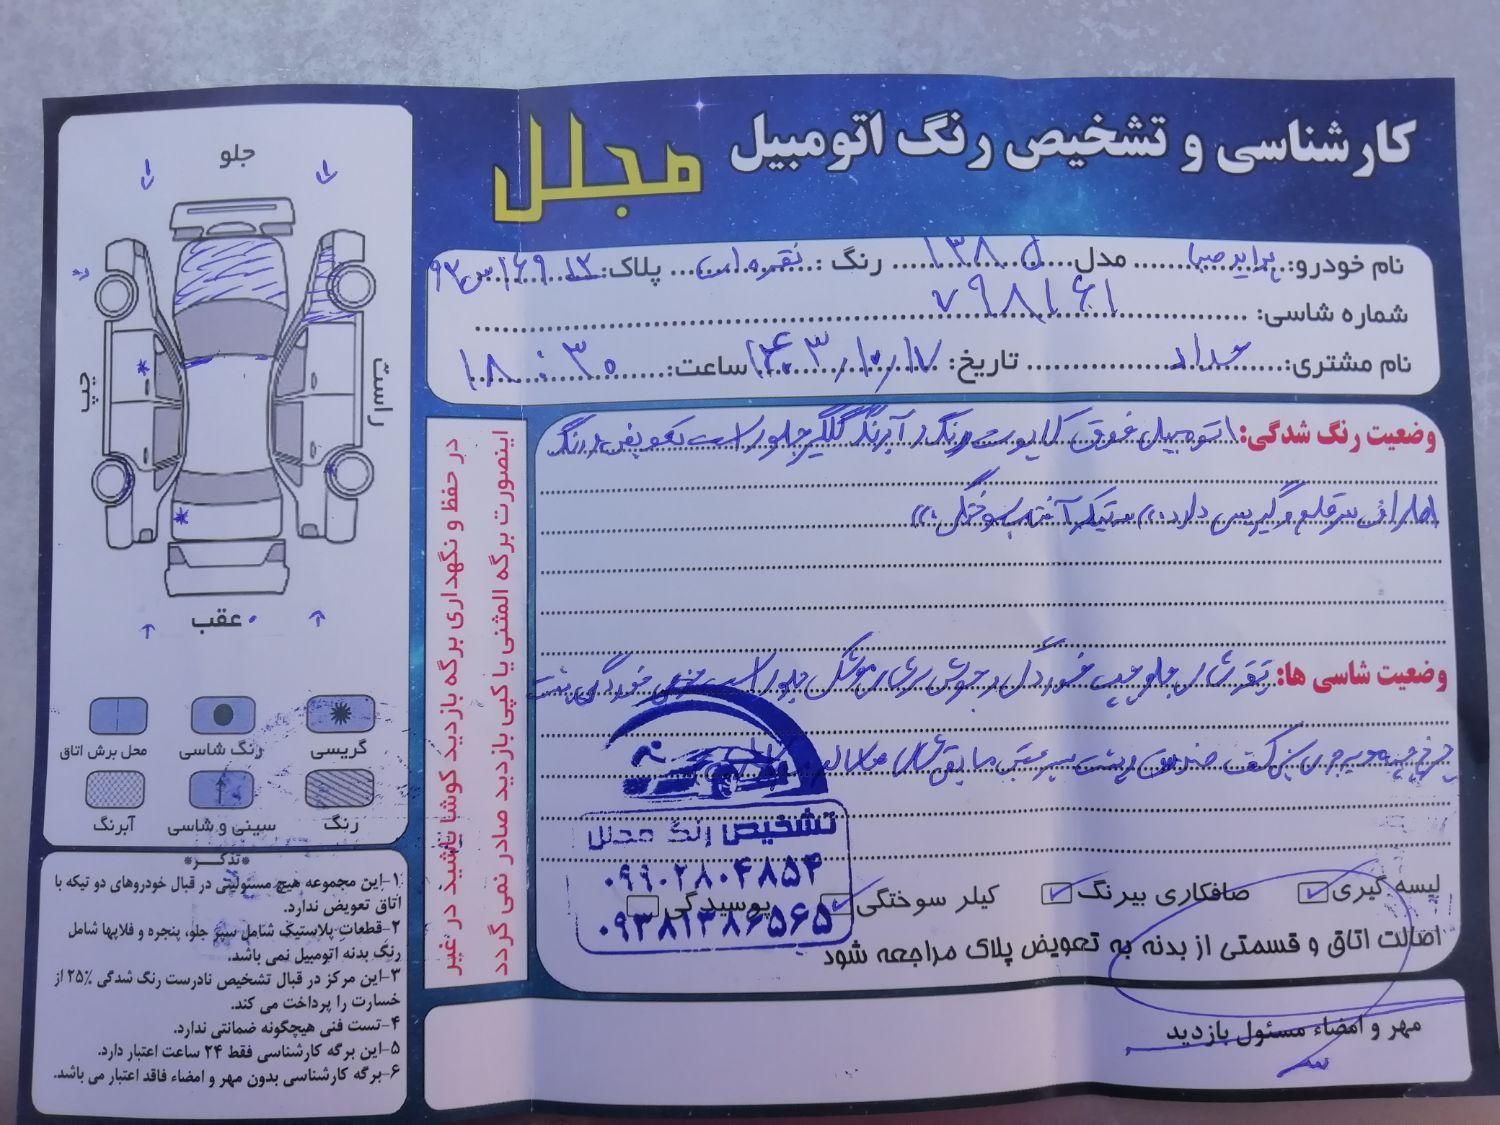 کارشناسی و تشخیص رنگ اتومبیل مجلل
نام خودرو: پراید صبا مدل ۱۳۸۰ رنگ: نقره‌ای پلاک:
شماره شاسی: ۷۹۸۱۶۱
نام مشتری: حداد تاریخ: ۱۴۰۳/۱۰/۱۷ ساعت: ۱۸:۳۰
وضعیت رنگ شدگی: اتومبیل فوق کاپوت رنگ و آبرنگ گلگیر جلو راست تعویض و رنگ
اطراف سرقلم و گریس دارد «استیک آفتاب سوختگی»
وضعیت شاسی ها: جلو چپ خوردگی جوش جلو راست خوردگی پشت
صندوق پشت
لیسه گیری صافکاری بیرنگ کیلر سوختگی پوسیدگی
اصالت اتاق و قسمتی از بدنه به تعویض پلاک مراجعه شود
مهر و امضاء مسئول بازدید
تشخیص رنگ مجلل
۰۹۹۰۲۸۰۴۸۵۴
۰۹۳۸۱۳۸۶۵۶۵
در حفظ و نگهداری برگه بازدید کوشا باشید در غیر
اینصورت برگه المثنی یا کپی بازدید صادر نمی گردد
جلو
چپ
راست
عقب
گریسی
رنگ شاسی
محل برش اتاق
رنگ
سینی و شاسی
آبرنگ
*تذکر*
۱-این مجموعه هیچ مسئولیتی در قبال خودروهای دو تیکه با
اتاق تعویض ندارد.
۲-قطعات پلاستیک شامل سپر جلو، پنجره و فلاپها شامل
رنگ بدنه اتومبیل نمی باشد.
۳-این مرکز در قبال تشخیص نادرست رنگ شدگی ۲۵٪ از
خسارت را پرداخت می کند.
۴-تست فنی هیچگونه ضمانتی ندارد.
۵-این برگه کارشناسی فقط ۲۴ ساعت اعتبار دارد.
۶-برگه کارشناسی بدون مهر و امضاء فاقد اعتبار می باشد.